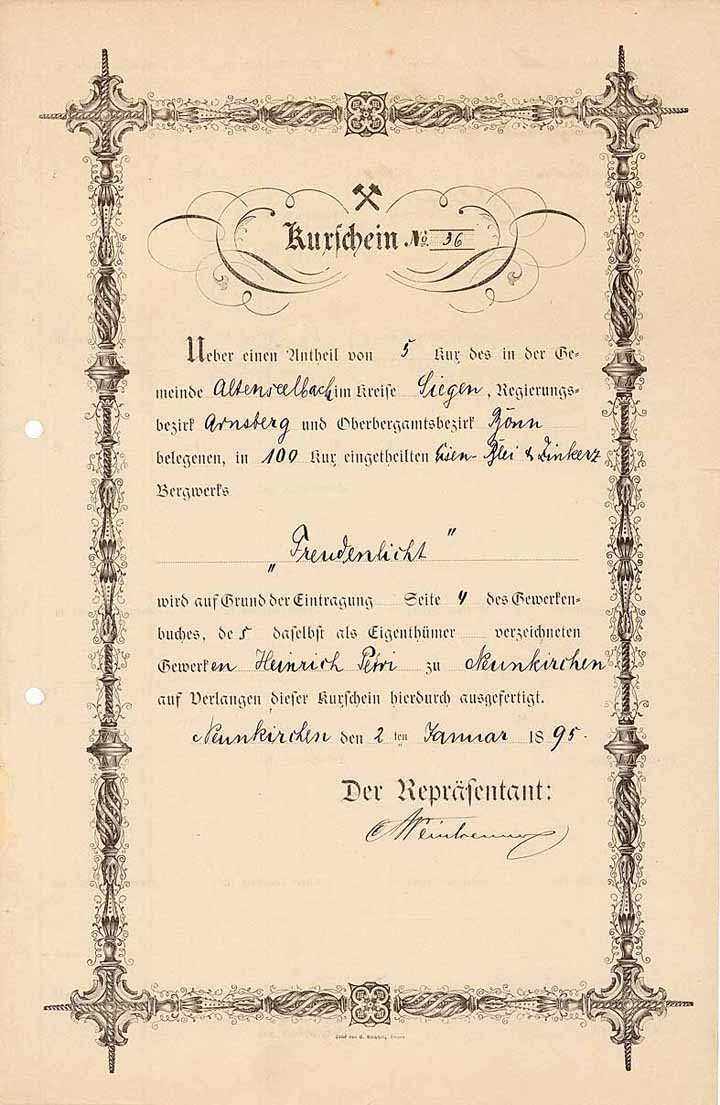 Kuxschein No. 36
Ueber einen Antheil von 5 Kux des in der Ge-
meinde Altenseelbach im Kreise Siegen, Regierungs-
bezirk Arnsberg und Oberbergamtsbezirk Bonn
belegenen, in 100 Kux eingetheilten Eisen- Blei & Zinkerz
Bergwerks
„Freudenlicht“
wird auf Grund der Eintragung Seite 4 des Gewerken-
buches, des daselbst als Eigenthümer verzeichneten
Gewerken Heinrich Petri zu Neunkirchen
auf Verlangen dieser Kuxschein hierdurch ausgefertigt.
Neunkirchen den 2ten Januar 1895.
Der Repräsentant: